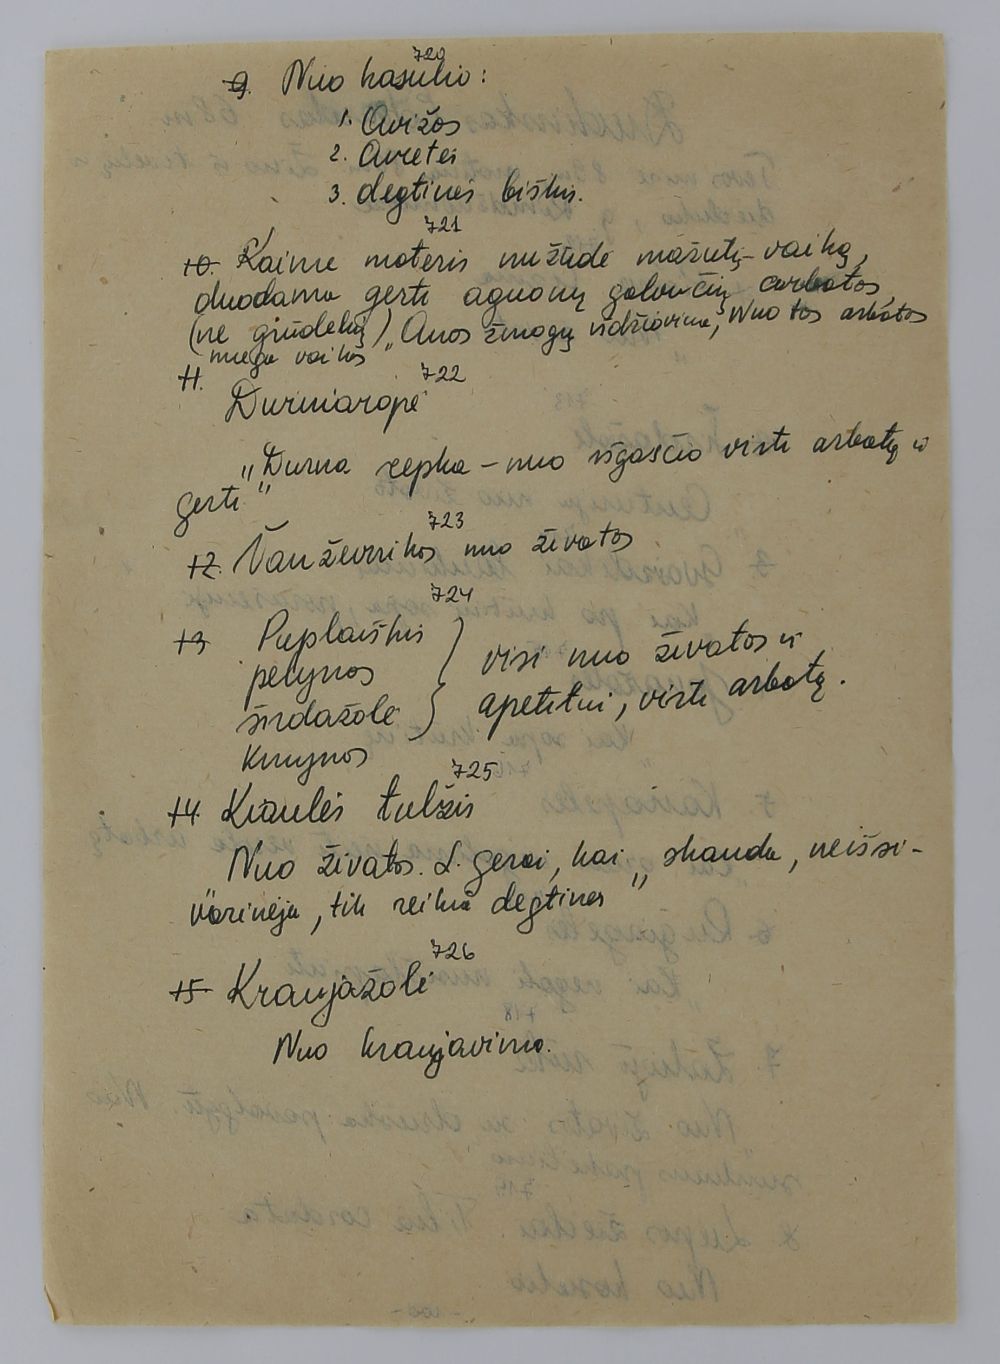 720
9. Nuo kosulio:
1. Avižos
2. Avietės
3. degtinės biškis.
721
10. Kaime moteris nužudė mažutį vaiką,
duodama gerti aguonų galvučių arbatos
(ne grūdelių). Anos žmogų išdžiovina, Nuo tos arbatos
miega vaikas"
722
11.
Durniaropė
"Durna repka – nuo išgąsčio virti arbatą ir
gerti"
723
12. Vanževnikas nuo živatos
724
13 Puplaiškis
pelynos
širdažolė
kmynos
visi nuo živatos ir
apetitui, virti arbatą.
725
14. Kiaulės tulžis
Nuo živatos. L. gerai, kai skauda, neišsi-
varinėja, tik reikia degtinės"
726
15 Kraujažolė
Nuo kraujavimo.